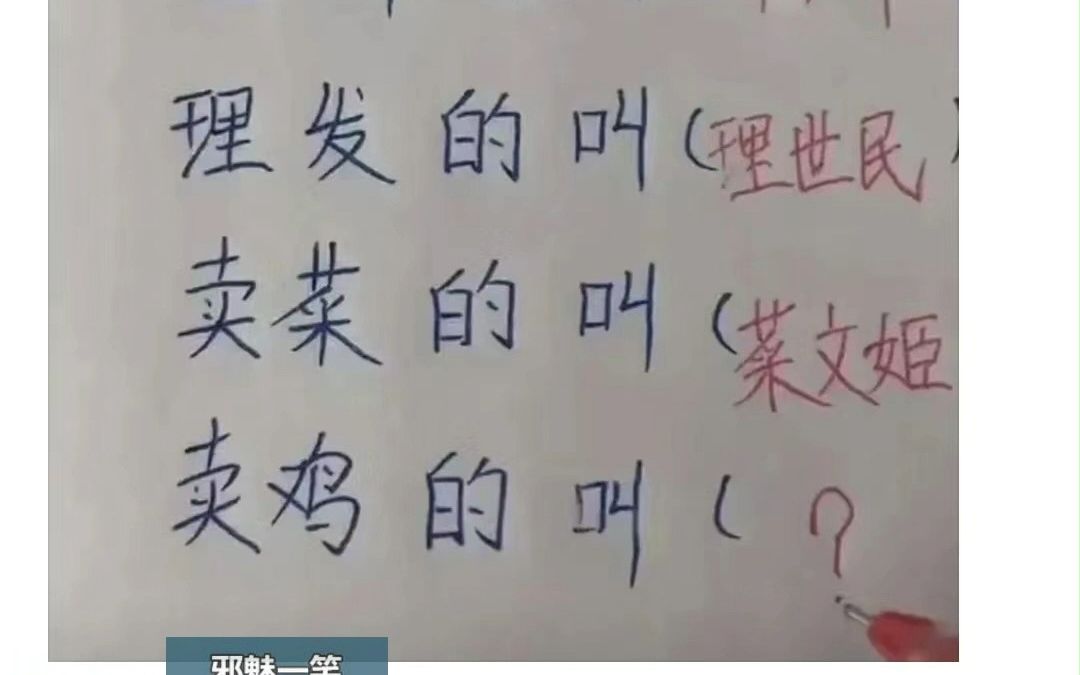 理发的叫(理世民)
卖菜的叫(菜文姬
卖鸡的叫( ?
邪魅一笑